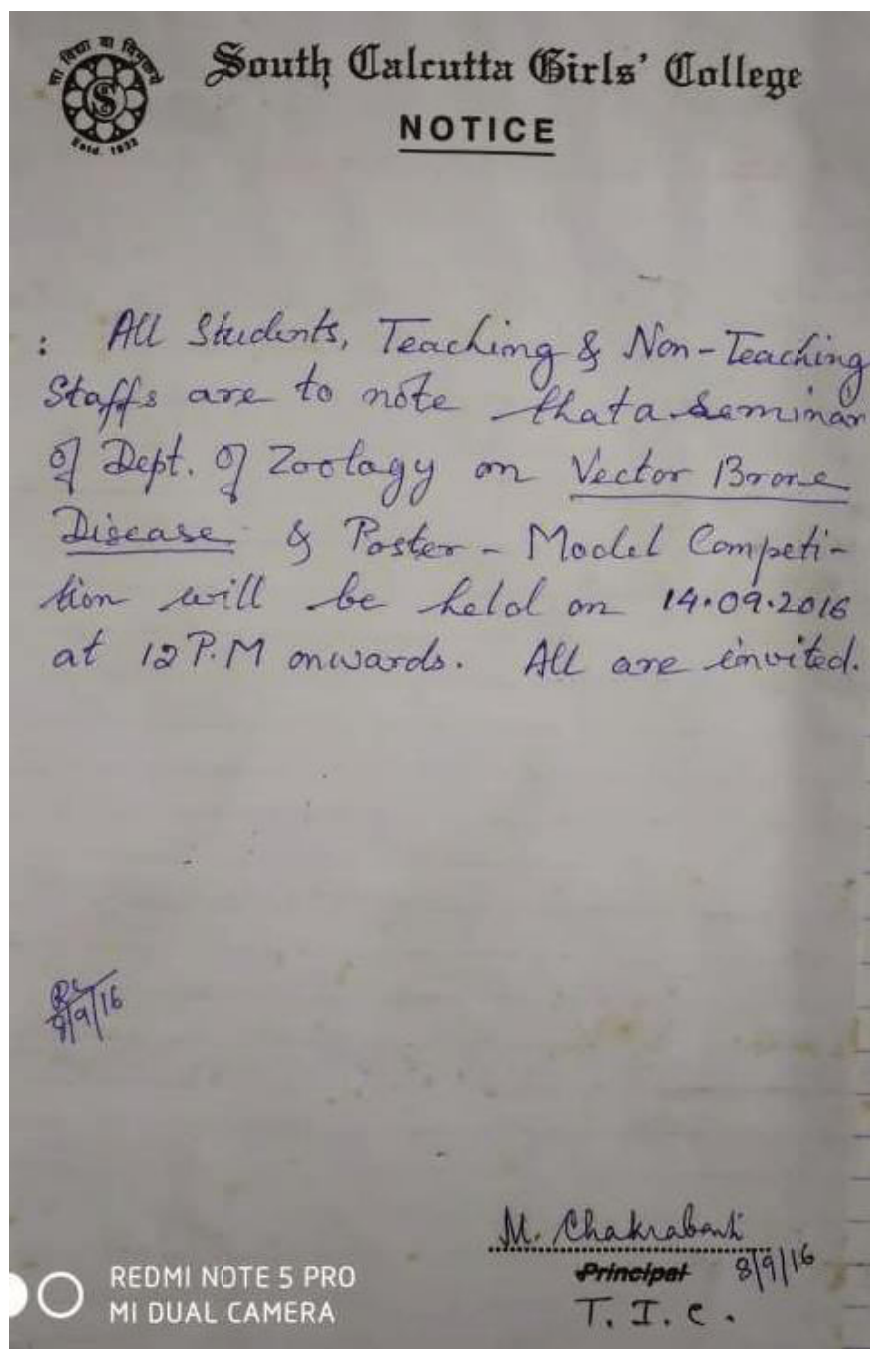 सा विद्या या विमुक्तये
S
Estd. 1932
South Calcutta Girls' College
NOTICE
: All Students, Teaching & Non-Teaching
Staffs are to note that a seminar
of Dept. of Zoology on Vector Brone
Disease & Poster - Model Competi-
tion will be held on 14.09.2016
at 12 P.M onwards. All are invited.
8/9/16
M. Chakrabarti
Principal 8/9/16
T. I. C.
REDMI NOTE 5 PRO
MI DUAL CAMERA